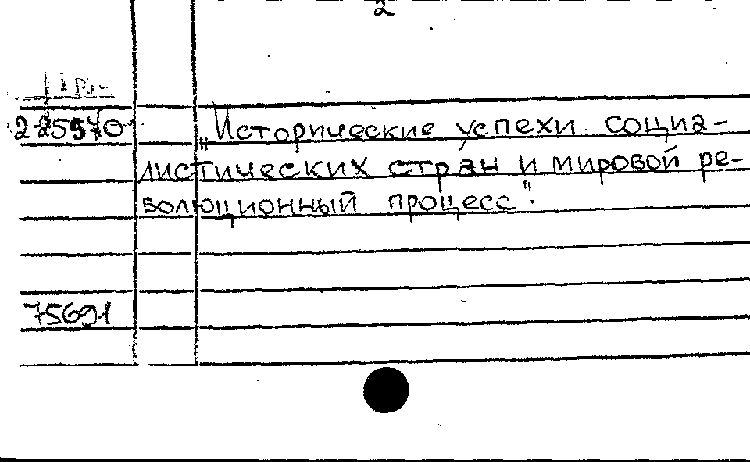 2
225970 „Исторические успехи социа-
листических стран и мировой ре-
волюционный процесс".
75691